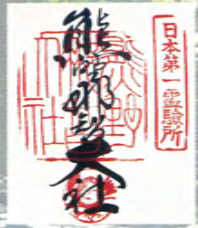 日本第一霊験所
熊野那智大社